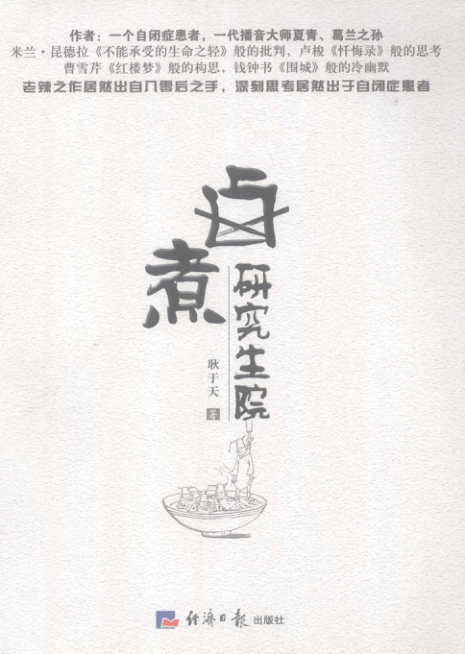 作者：一个自闭症患者，一代播音大师夏青、葛兰之孙
米兰·昆德拉《不能承受的生命之轻》般的批判，卢梭《忏悔录》般的思考
曹雪芹《红楼梦》般的构思，钱钟书《围城》般的冷幽默
老辣之作居然出自八零后之手，深刻思考居然出于自闭症患者
卤煮
研究生院
耿于天 著
经济日报出版社